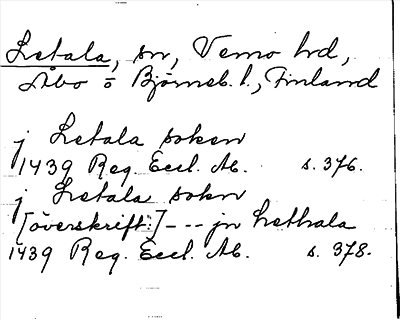 Letala, sn, Vemo hd,
Åbo o Björneb. l., Finland
j Letala soken
1439 Reg. Eccl. Ab. s. 376.
j Letala sokn
[överskrift:] --- jn Lethala
1439 Reg. Eccl. Ab. s. 378.